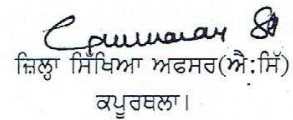 ਜ਼ਿਲ੍ਹਾ ਸਿੱਖਿਆ ਅਫਸਰ(ਐ:ਸਿੱ)
ਕਪੂਰਥਲਾ।